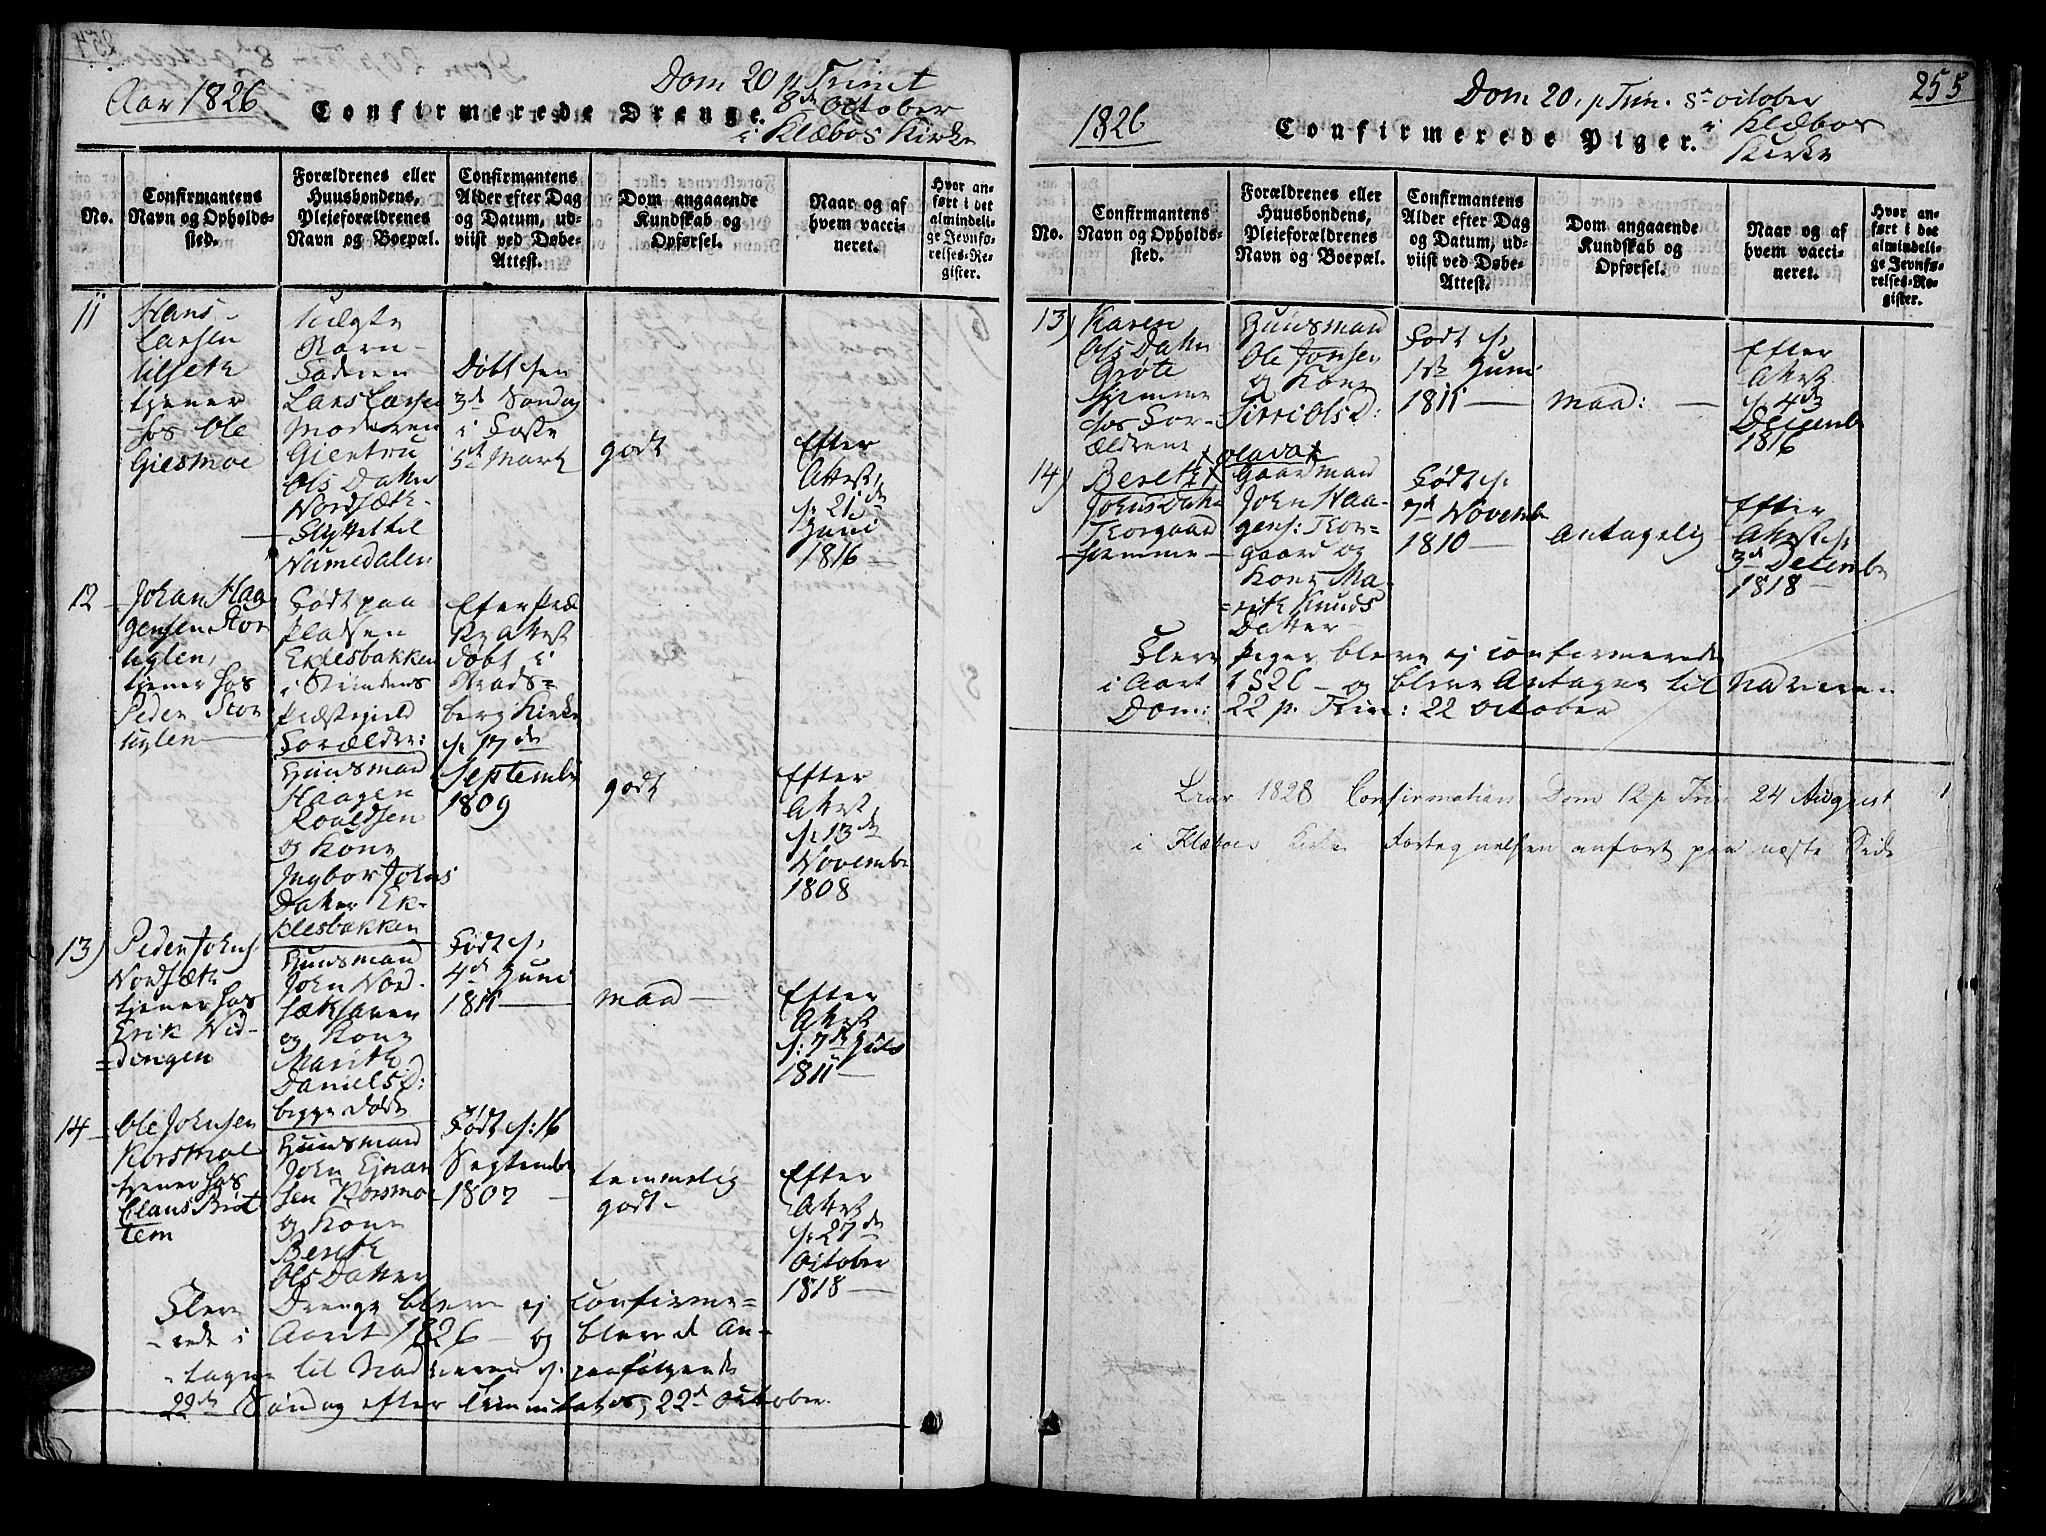 Aar 1826
Confirmerede Drenge.
Dom 20 p Trinit
8de October
i Klæboe Kirke
No.
Confirmantens Navn og Opholds-
sted.
Forældrenes eller
Huusbondens,
Pleieforældrenes
Navn og Boepæl.
Confirmantens
Alder efter Dag
og Datum, ud-
viist ved Døbe-
Attest.
Dom angaaende
Kundskab og
Opførsel.
Naar og af
hvem vacci-
neret.
Hvor an-
ført i det
almindeli-
ge Jevnfø-
relses-Re-
gister.
11
Hans
Larsen
Ulseth
tjener
hos Ole
Giesmoe
Uægte
Barn
Faderen
Lars Larsen
Moderen
Giertru
Ols Datter
Nordsæth
flyttet til
Numedalen
Døbt den
3de Søndag
i Faste
5te Marts
godt
Efter
Attest
21de
Juni
1816
12
Johan Haa
gensen Stor
uglen,
tjener hos
Peder Stor
uglen
Født paa
Pladsen
Eklesbakken
i Strindens
Præstegield
Forældre:
Huusmand
Haagen
Roaldsen
og Kone
Ingbor Johns
Datter Ek-
klesbakken
Efter Præ
Attest
døbt i
Strads=
berg Kirke
17de
Septembr
1809
godt
Efter
Attest
13de
Novembr
1808
13)
Peder Johns
Nordsæth
tjener hos
Erik Vid-
=dingen
Huusmand
John Nord-
sæthaven
og Kone
Marith
Daniels D:
begge døde
Født d.
4de Juni
1811
maa
Efter
Attest
7de Juli
1811
14
Ole Johnsen
Korsmoe
tjener hos
Claus Brøt
tem
Huusmand
John Ejnar
sen Korsmo
og Kone
Berith
Ols Datter
Født d: 16
Septembr
1807
temmelig
godt
Efter
Attest
27de
October
1818
Flere Drenge bleve ej confirme=
rede i Aaret 1826 og bleve d An-
tagne til Nadveren paafølgende
22de Søndag efter Trinitatis, 22de October
1826
Confirmerede Piger.
Dom 20. p Trin. 8de October
i Klæboe
Kirke
255
No.
Confirmantens
Navn og Opholds-
sted.
Forældrenes eller
Huusbondens,
Pleieforældrenes
Navn og Boepæl.
Confirmantens
Alder efter Dag
og Datum, ud-
viist ved Døbe-
Attest.
Dom angaaende
Kundskab og
Opførsel.
Naar og af
hvem vacci-
neret.
Hvor an-
ført i det
almindeli-
ge Jevnfø-
relses-Re-
gister.
13)
Karen
Ols Datter
Grøte
hjemme
hos For-
ældrene
Huusmand
Ole Jonsen
og Kone
Sirri Ols D:
Født d.
1ste Juni
1811
maa:
Efter
Attest
4de
Decemb
1816
14)
Bereth
Johns Datter
Teorgaard
hjemme
olava
Gaardmand
John Haa-
gens: Teor=
gaard og
Kone Ma-
=rith Knuds
Datter
Født d.
7de Novemb
1810
Antagelig
Efter
Attest
3de Decembr
1818
Flere Piger bleve ej confirmerede
i Aaret 1826 og bleve Antagne til Nadveren
Dom: 22 p. Trin: 22 October
1828 Confirmation Dom 12 p Trin 24 August
i Klæboe Kirke Fortegnelsen anført paa næste Side